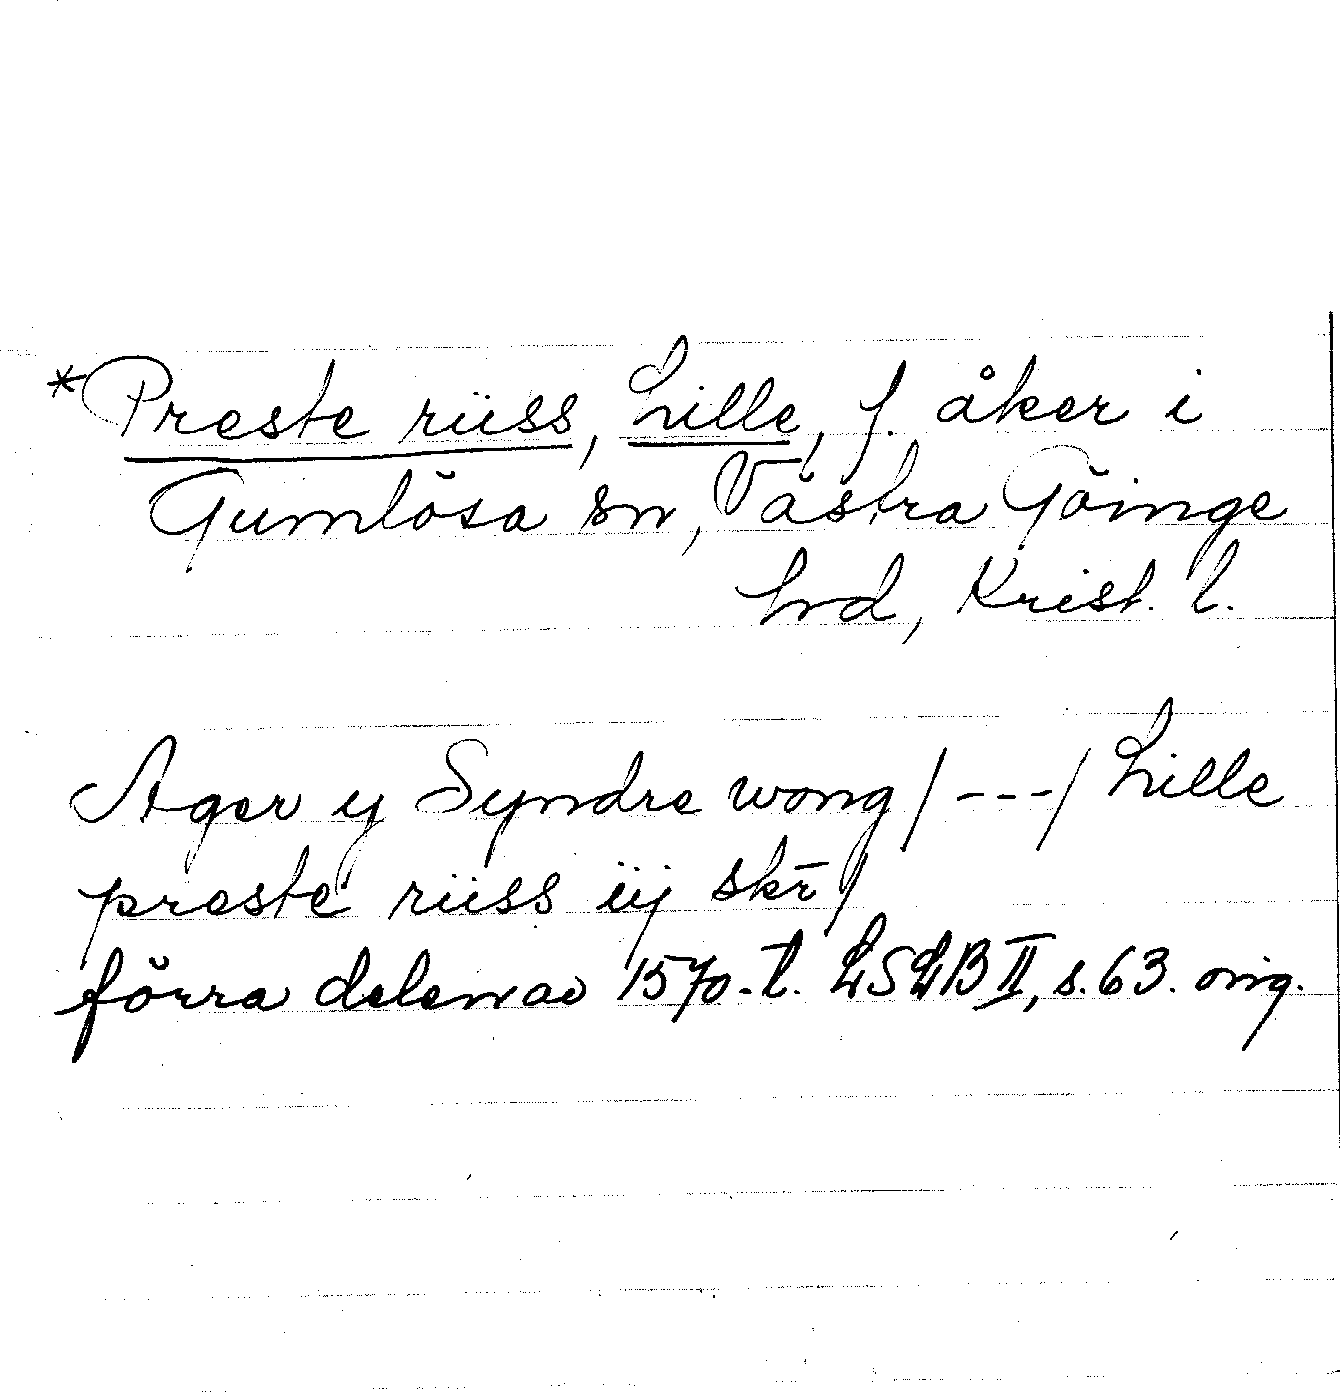 *Preste rüss, Lille, f. åker i
Gumlösa sn, Västra Göinge
hrd, Krist. l.
Ager y Syndre wong /---/ Lille
preste rüss iij skr̄ /
förra delen av 1570-t. LSLB II, s. 63. orig.